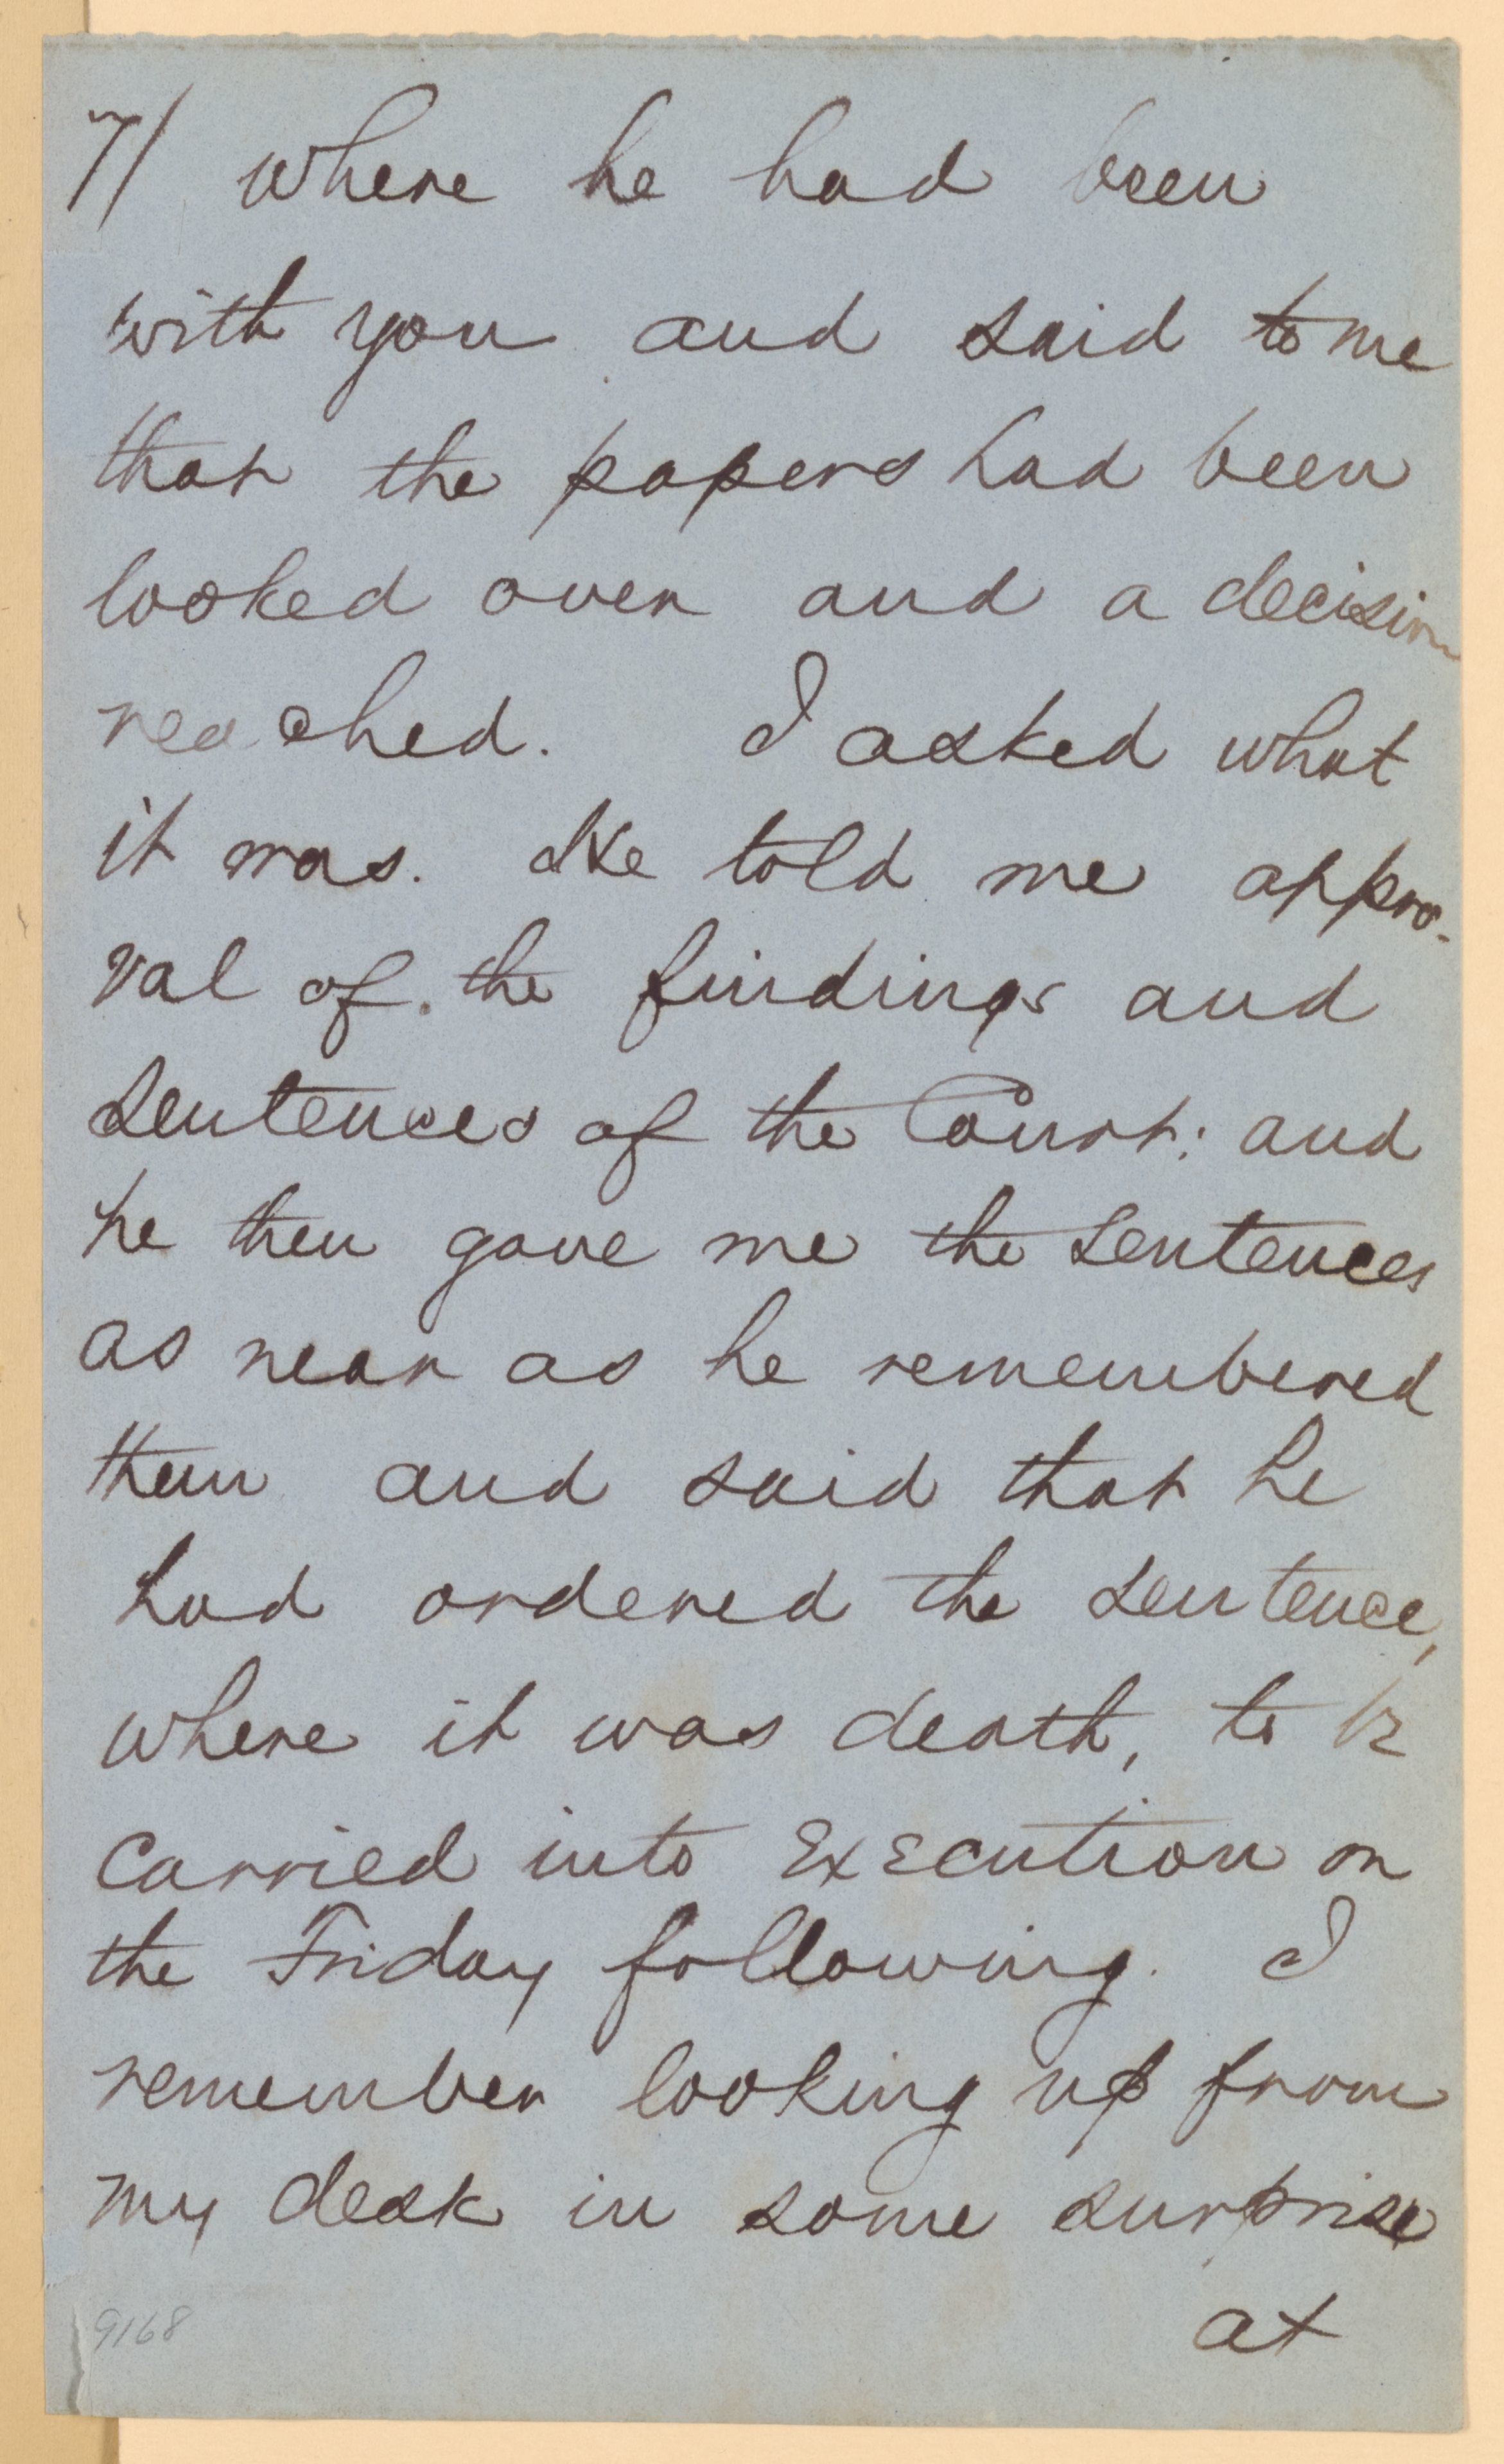 7/ where he had been
with you and said to me
that the papers had been
looked over and a decision
reached. I asked what
it was. He told me appro-
val of the findings and
sentences of the Court; and
he then gave me the sentences
as near as he remembered
them and said that he
had ordered the sentence,
where it was death, to be
carried into execution on
the Friday following. I
remember looking up from
my desk in some surprise
at
9168